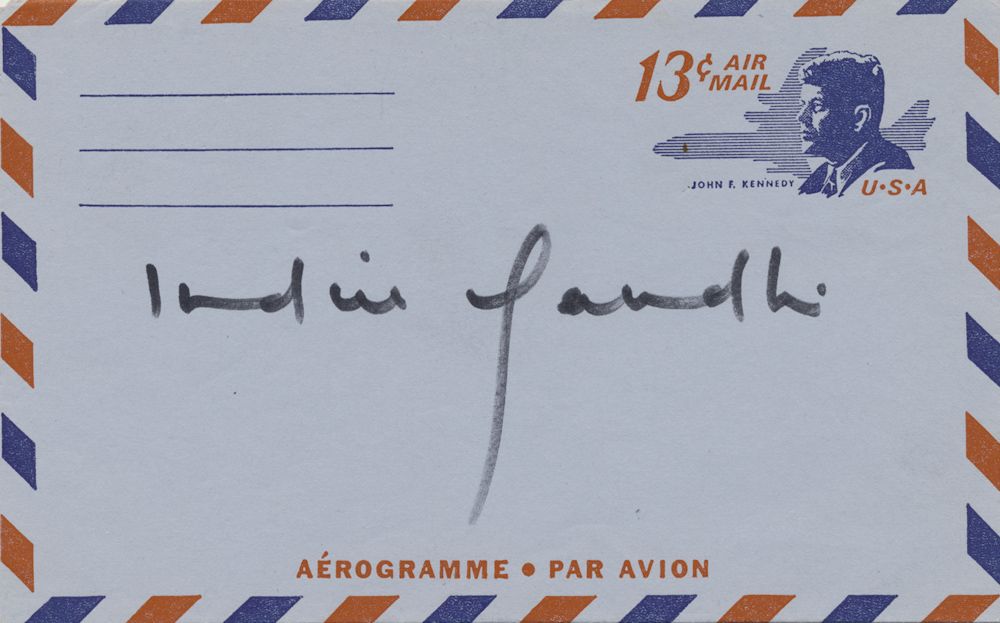 13¢ AIR
MAIL
JOHN F. KENNEDY
U·S·A
Indira Gandhi
AÉROGRAMME • PAR AVION